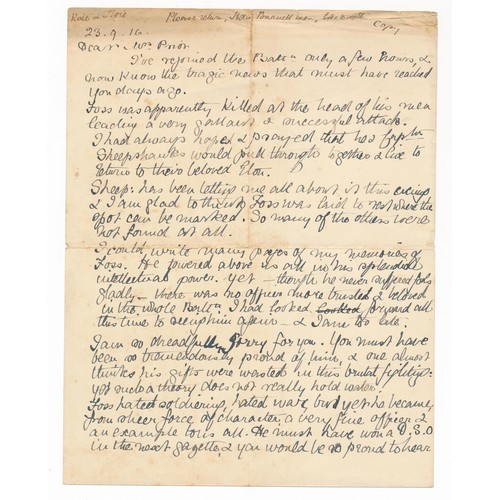 Please return, Copy
23.9.16.
Dear Mrs Prior
I've rejoined the Battn only a few hours, &
now know the tragic news that must have reached
you days ago.
Foss was apparently killed at the head of his men
leading a very gallant & successful attack.
I had always hoped & prayed that
Sheepshanks would pull through together & live to
return to their beloved Eton.
Sheep: has been telling me all about it this evening
& I am glad to think Foss was laid to rest where the
spot can be marked. So many of the others were
not found at all.
I could write many pages of my memories of
Foss. He towered above us all in his splendid
intellectual power. Yet – though he never suffered fools
gladly – there was no officer more trusted & beloved
in the whole Battn. I had looked looked forward all
this time to seeing him again – & I am too late.
I am so dreadfully sorry for you. You must have
been so tremendously proud of him, & one almost
thinks his gifts were wasted in this brutal fighting:
yet such a theory does not really hold water.
Foss hated soldiering, hated war: but yet he became,
from sheer force of character, a very fine officer &
an example to us all. He must have won a D.S.O
in the next gazette, & you would be so proud to hear